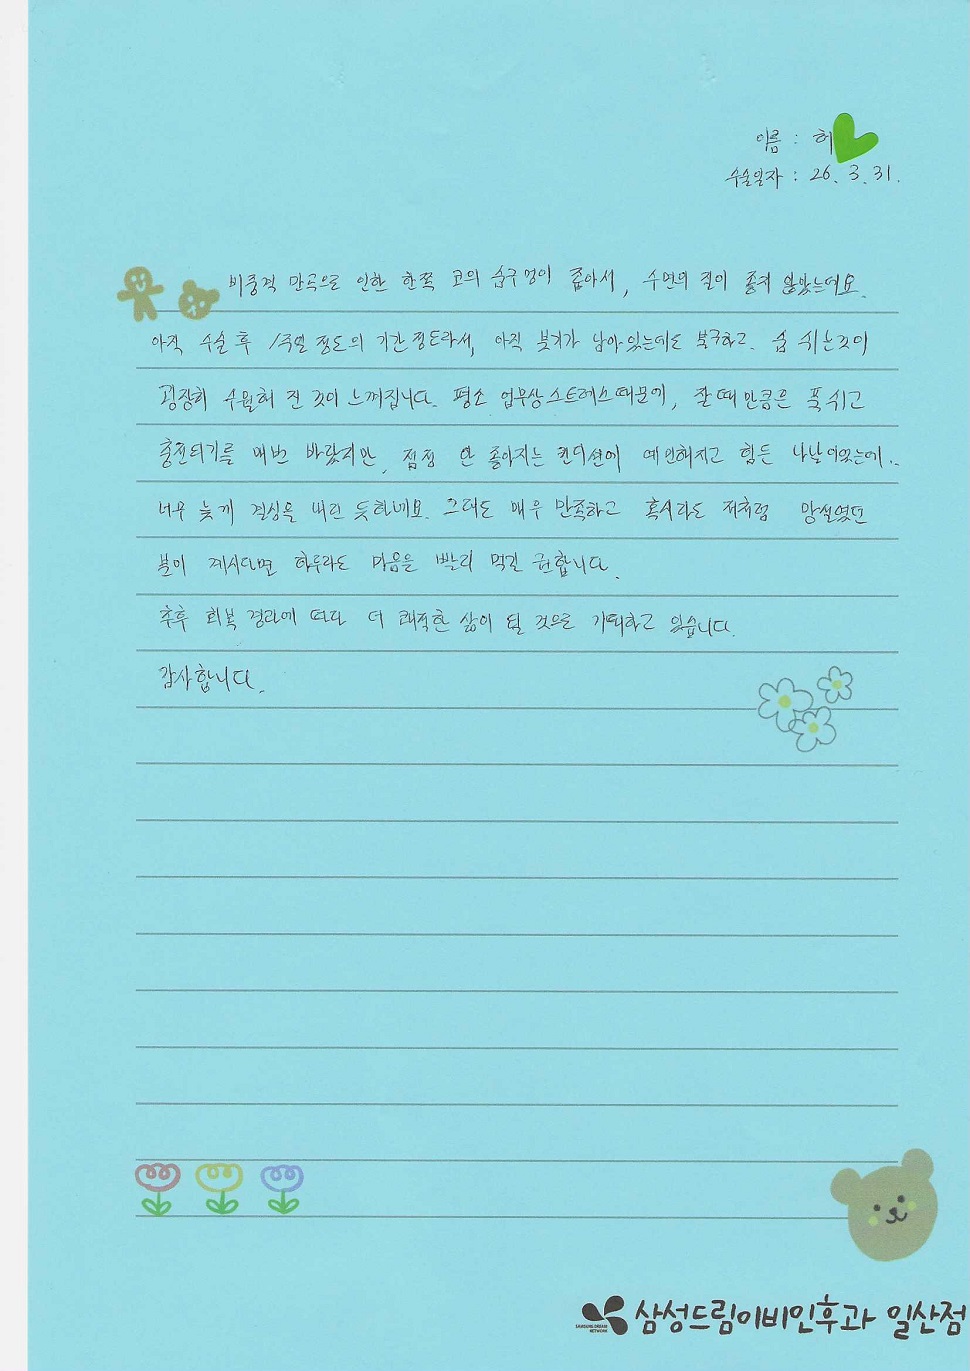 이름 : 허
수술일자 : 26. 3. 31.
비중격 만곡으로 인한 한쪽 코의 숨구멍이 좁아서, 수면의 질이 좋지 않았는데요.
아직 수술 후 1주일 정도의 기간정도라서, 아직 붓기가 남아있는데도 불구하고. 숨 쉬는것이
굉장히 수월해 진 것이 느껴집니다. 평소 업무상스트레스때문에, 잘때만큼은 푹쉬고
충전되기를 매번 바랐지만, 점점 안 좋아지는 컨디션에 예민해지고 힘든 나날이었는데..
너무 늦게 결심을 내린 듯하네요. 그래도 매우 만족하고 혹시라도 저처럼 망설였던
분이 계시다면 하루라도 마음을 빨리 먹길 권합니다.
추후 회복 경과에 따라 더 쾌적한 삶이 될 것으로 기대하고 있습니다.
감사합니다.
SAMSUNG DREAM
NETWORK
삼성드림이비인후과 일산점